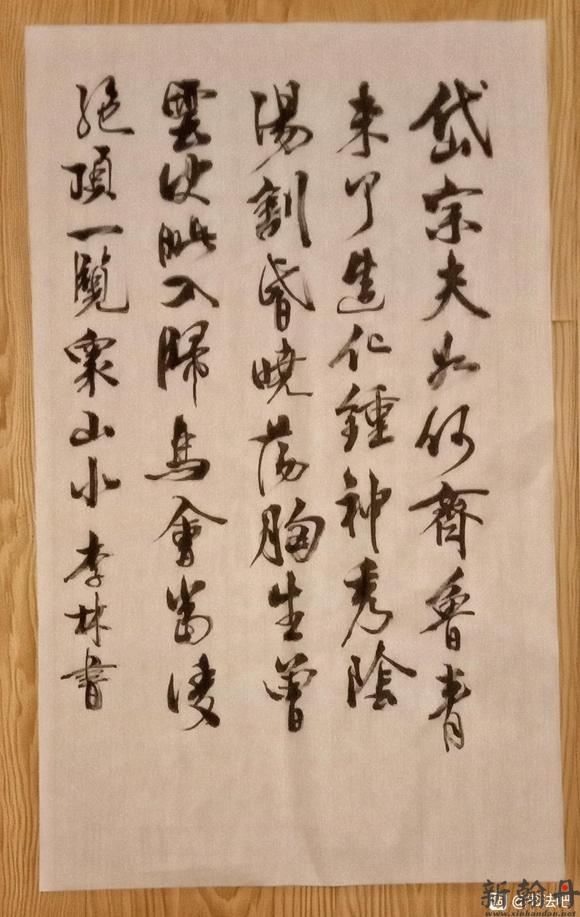 岱宗夫如何齊魯青
未了造化鍾神秀陰
湯割昏曉荡胸生曾
雲决眦入歸鳥會當凌
絕頂一覽衆山小 李林書
新翰丹
@书法吧
www.xinhandan.com